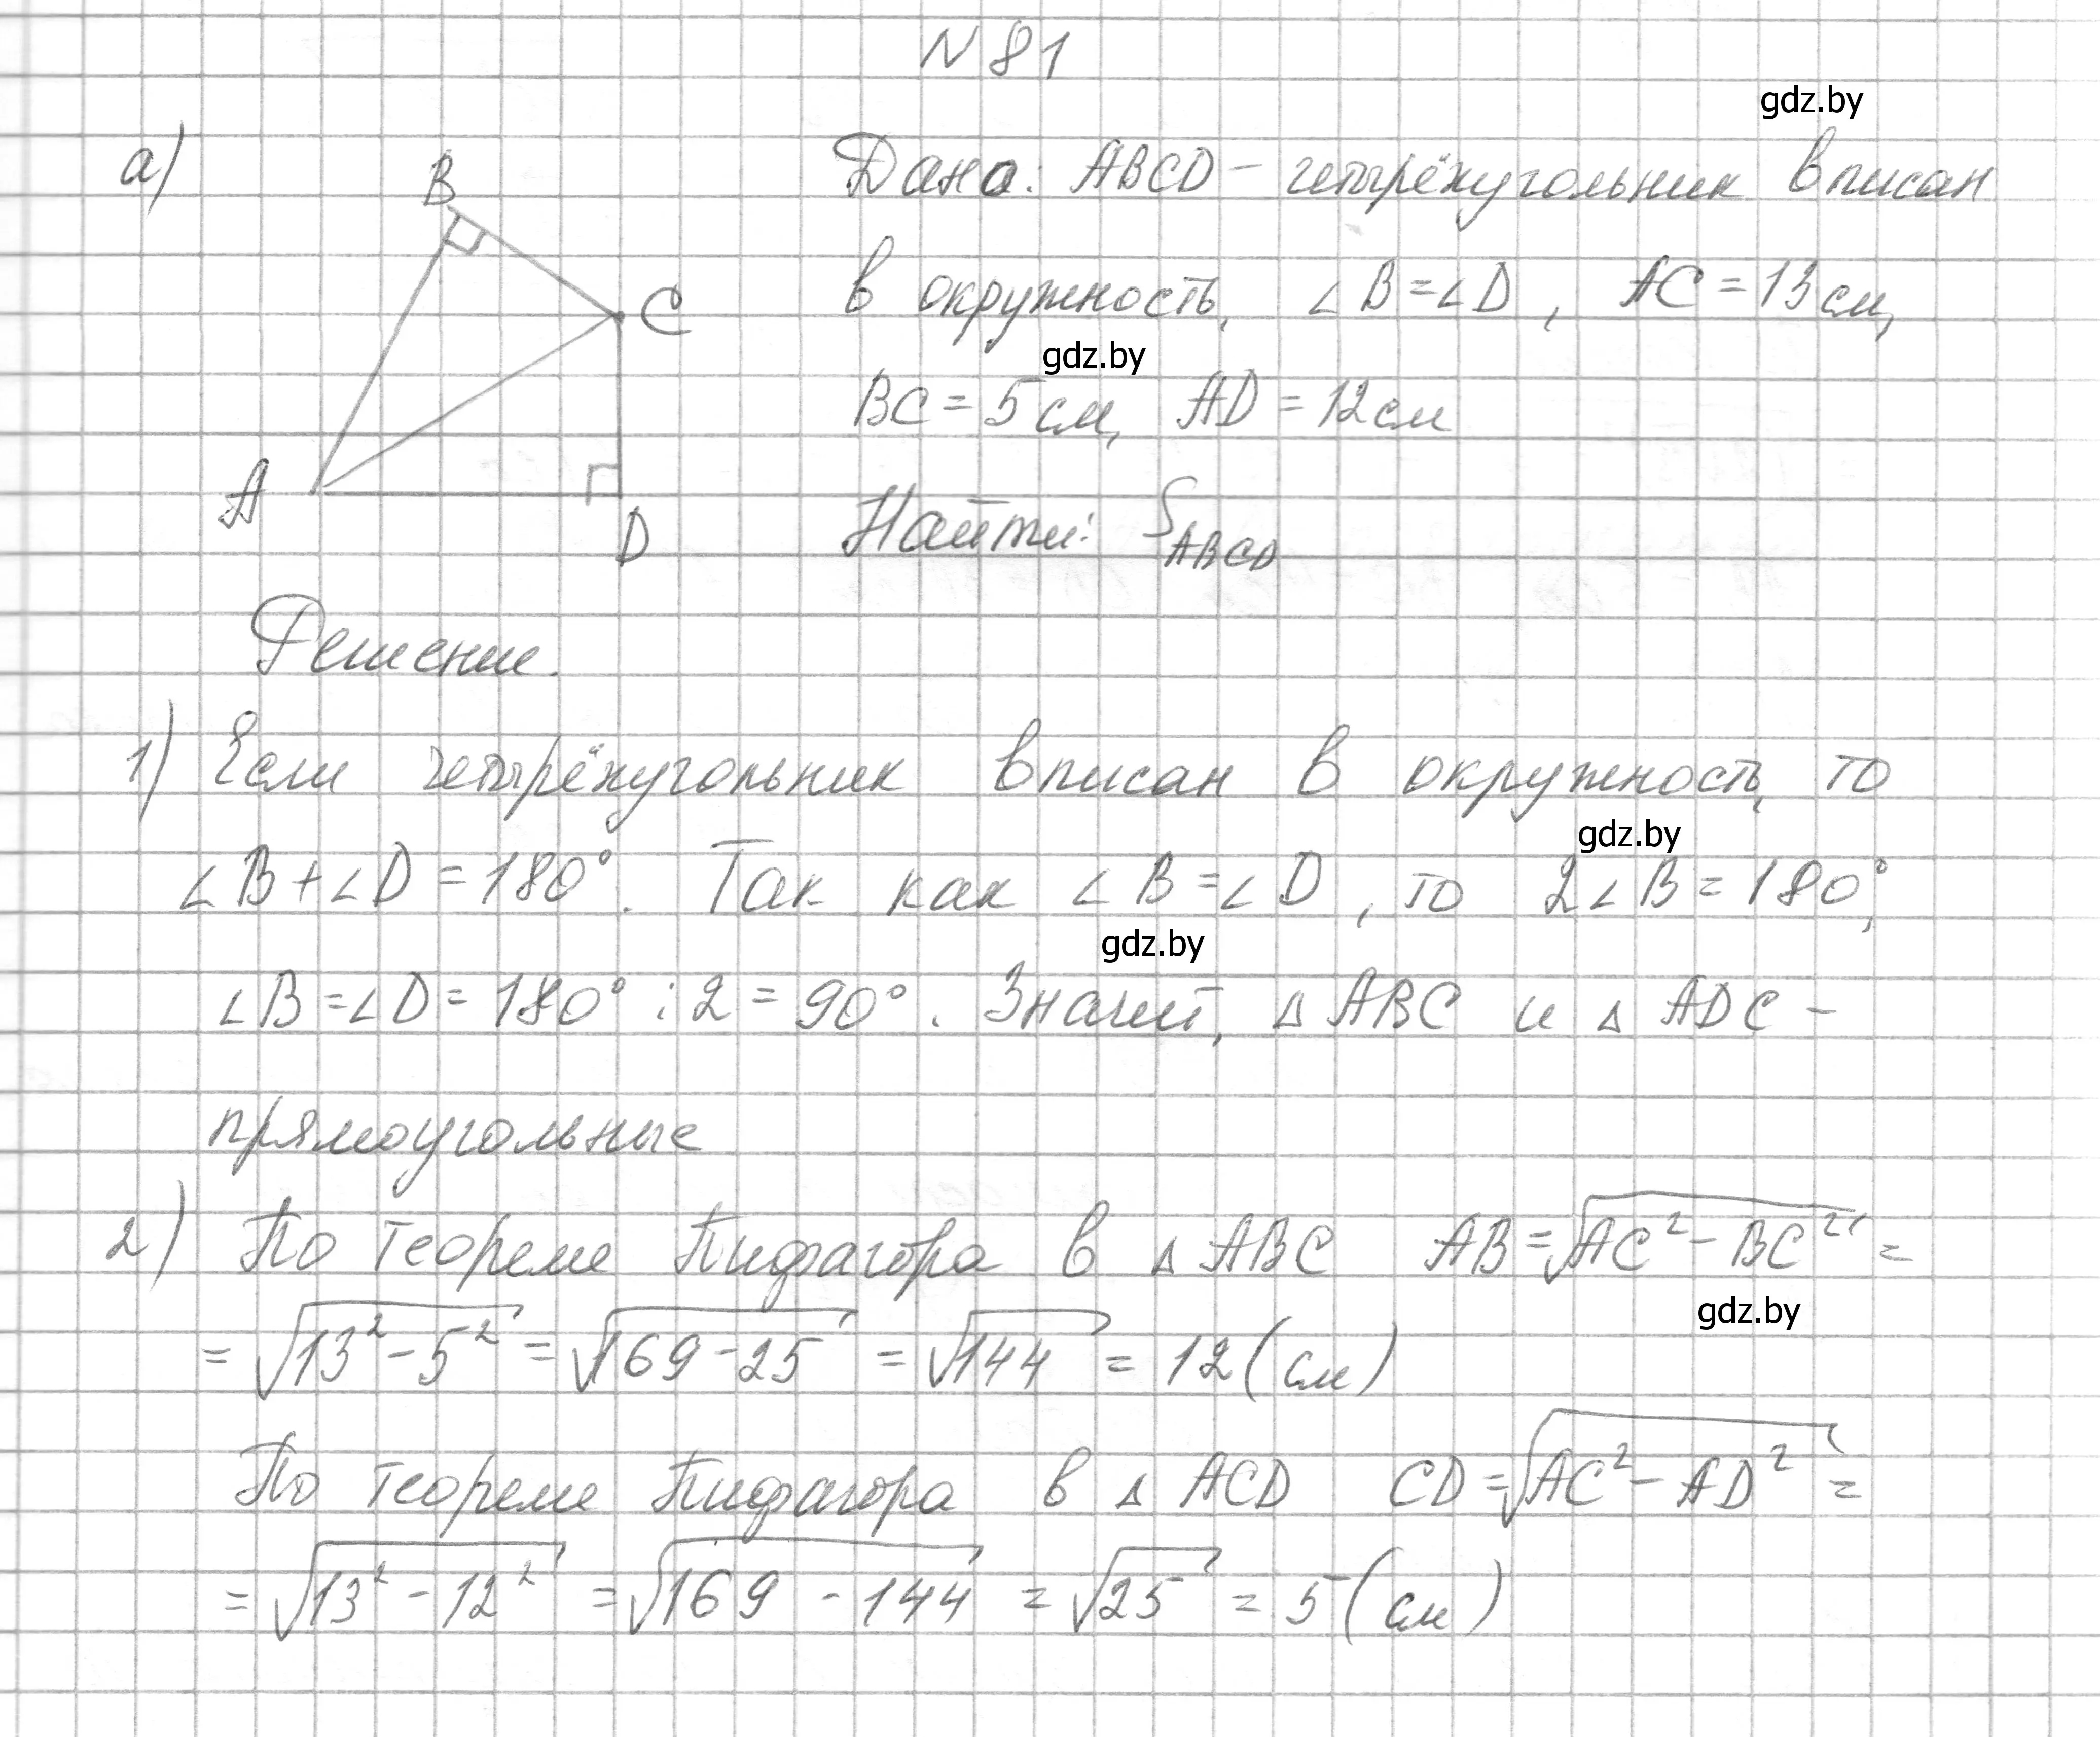 N 81
gdz.by
а) Дано: ABCD – четырёхугольник вписан
B
в окружность, ∠B=∠D, AC=13см,
C
gdz.by
BC=5см, AD=12см
A
Найти: S ABCD
D
Решение.
1) Если четырёхугольник вписан в окружность, то
gdz.by
∠B+∠D=180°. Так как ∠B=∠D, то 2∠B=180°,
gdz.by
∠B=∠D=180°:2=90°. Значит, △ABC и △ADC –
прямоугольные
2) По теореме Пифагора в △ABC AB=√AC²-BC²=
gdz.by
=√13²-5²=√169-25=√144=12(см)
По теореме Пифагора в △ACD CD=√AC²-AD²=
=√13²-12²=√169-144=√25=5(см)